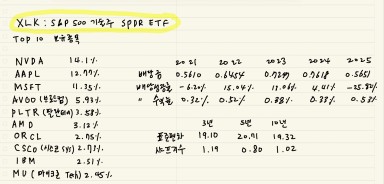 XLK : S&P 500 기술주 SPDR ETF
TOP 10 보유종목
NVDA 14.1%
AAPL 12.77% 2021 2022 2023 2024 2025
MSFT 11.35% 배당금 0.5610 0.6454 0.7297 0.7618 0.5651
AVGO (브로드컴) 5.93% 배당성장률 -6.20% 15.04% 13.06% 4.41% -25.82%
PLTR (팔란티어) 3.58% " 수익률 0.32% 0.52% 0.38% 0.33% 0.53%
AMD 3.12% 3년 5년 10년
ORCL 2.75% 표준편차 19.10 20.71 19.32
CSCO (시스코 sys) 2.73% 샤프지수 1.19 0.80 1.02
IBM 2.51%
MU (마이크론 Teh) 2.45%